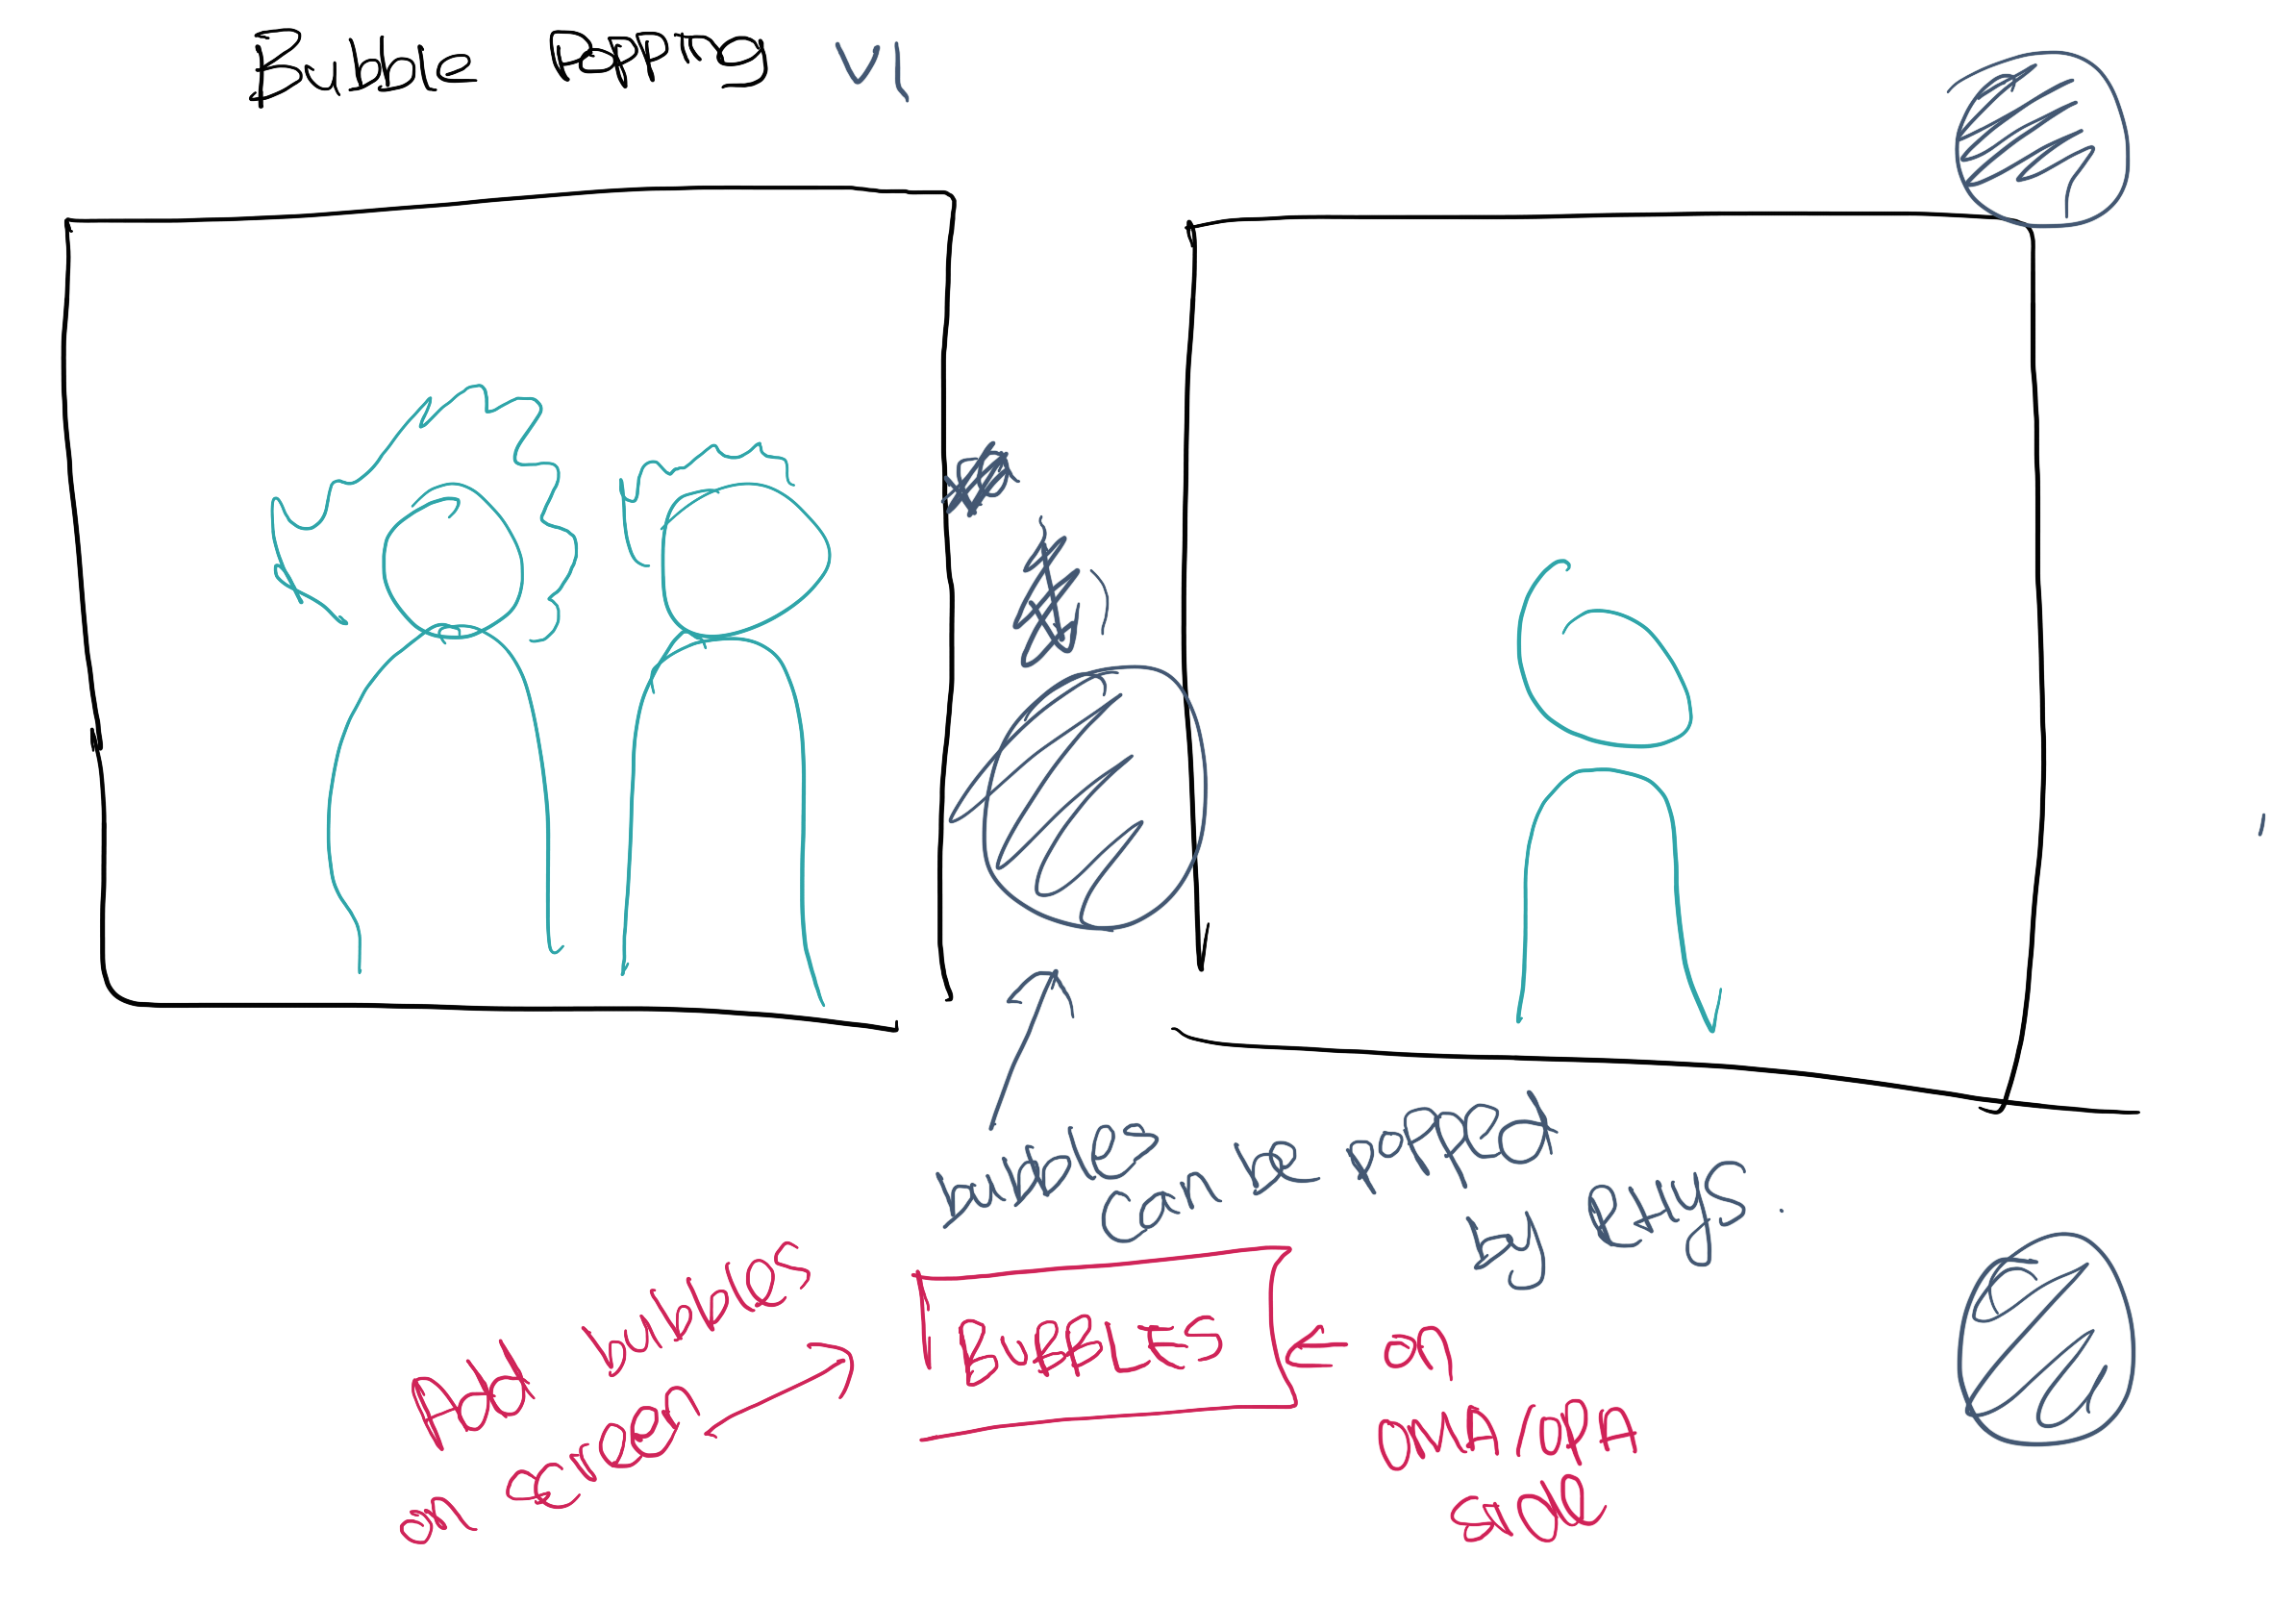 Bubble Popping V1
bubbles
can be popped
by Rhys.
Add bubbles
on screen
BUBBLES
on
OMA OPA
side